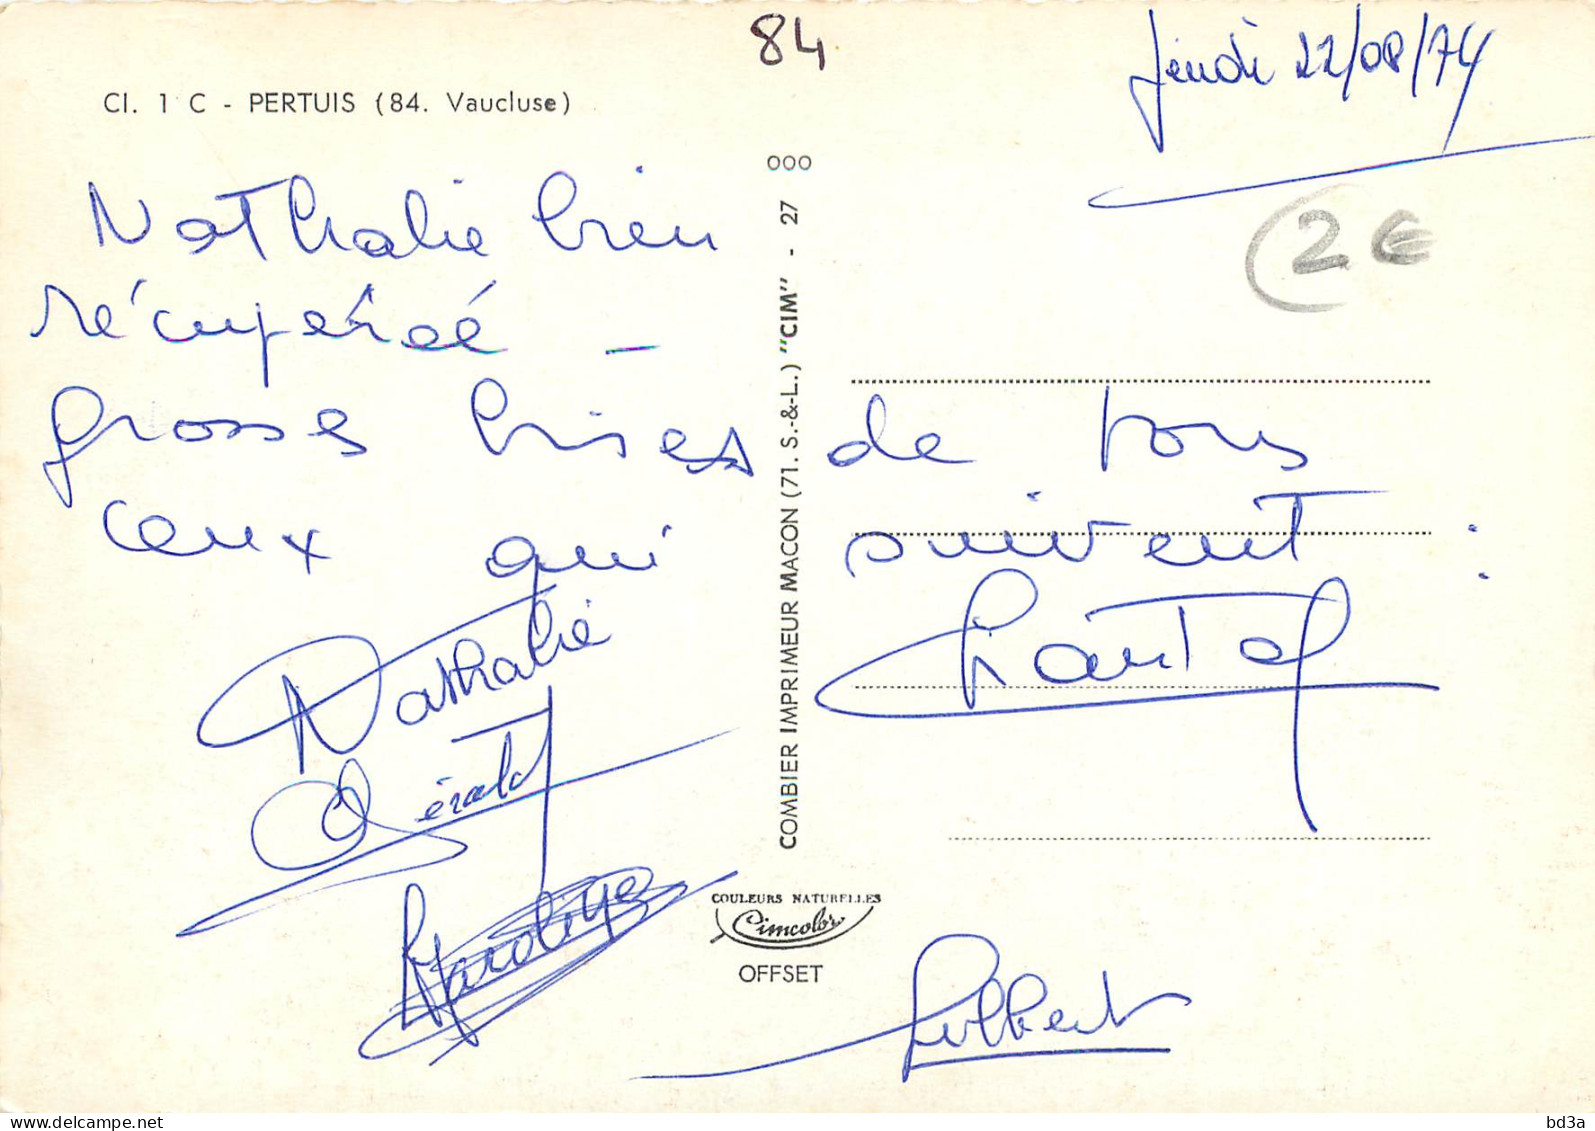 84
Jeudi 22/08/74
Cl. 1 C - PERTUIS (84. Vaucluse)
2€
Nathalie bien
récupérée -
grosses bises de tous
ceux qui suivent :
Nathalie
Chantal
Gérald
Gilbert
000
COMBIER IMPRIMEUR MACON (71. S.-&-L.) "CIM" - 27
COULEURS NATURELLES
Cimcolor
OFFSET
www.delcampe.net
bd3a